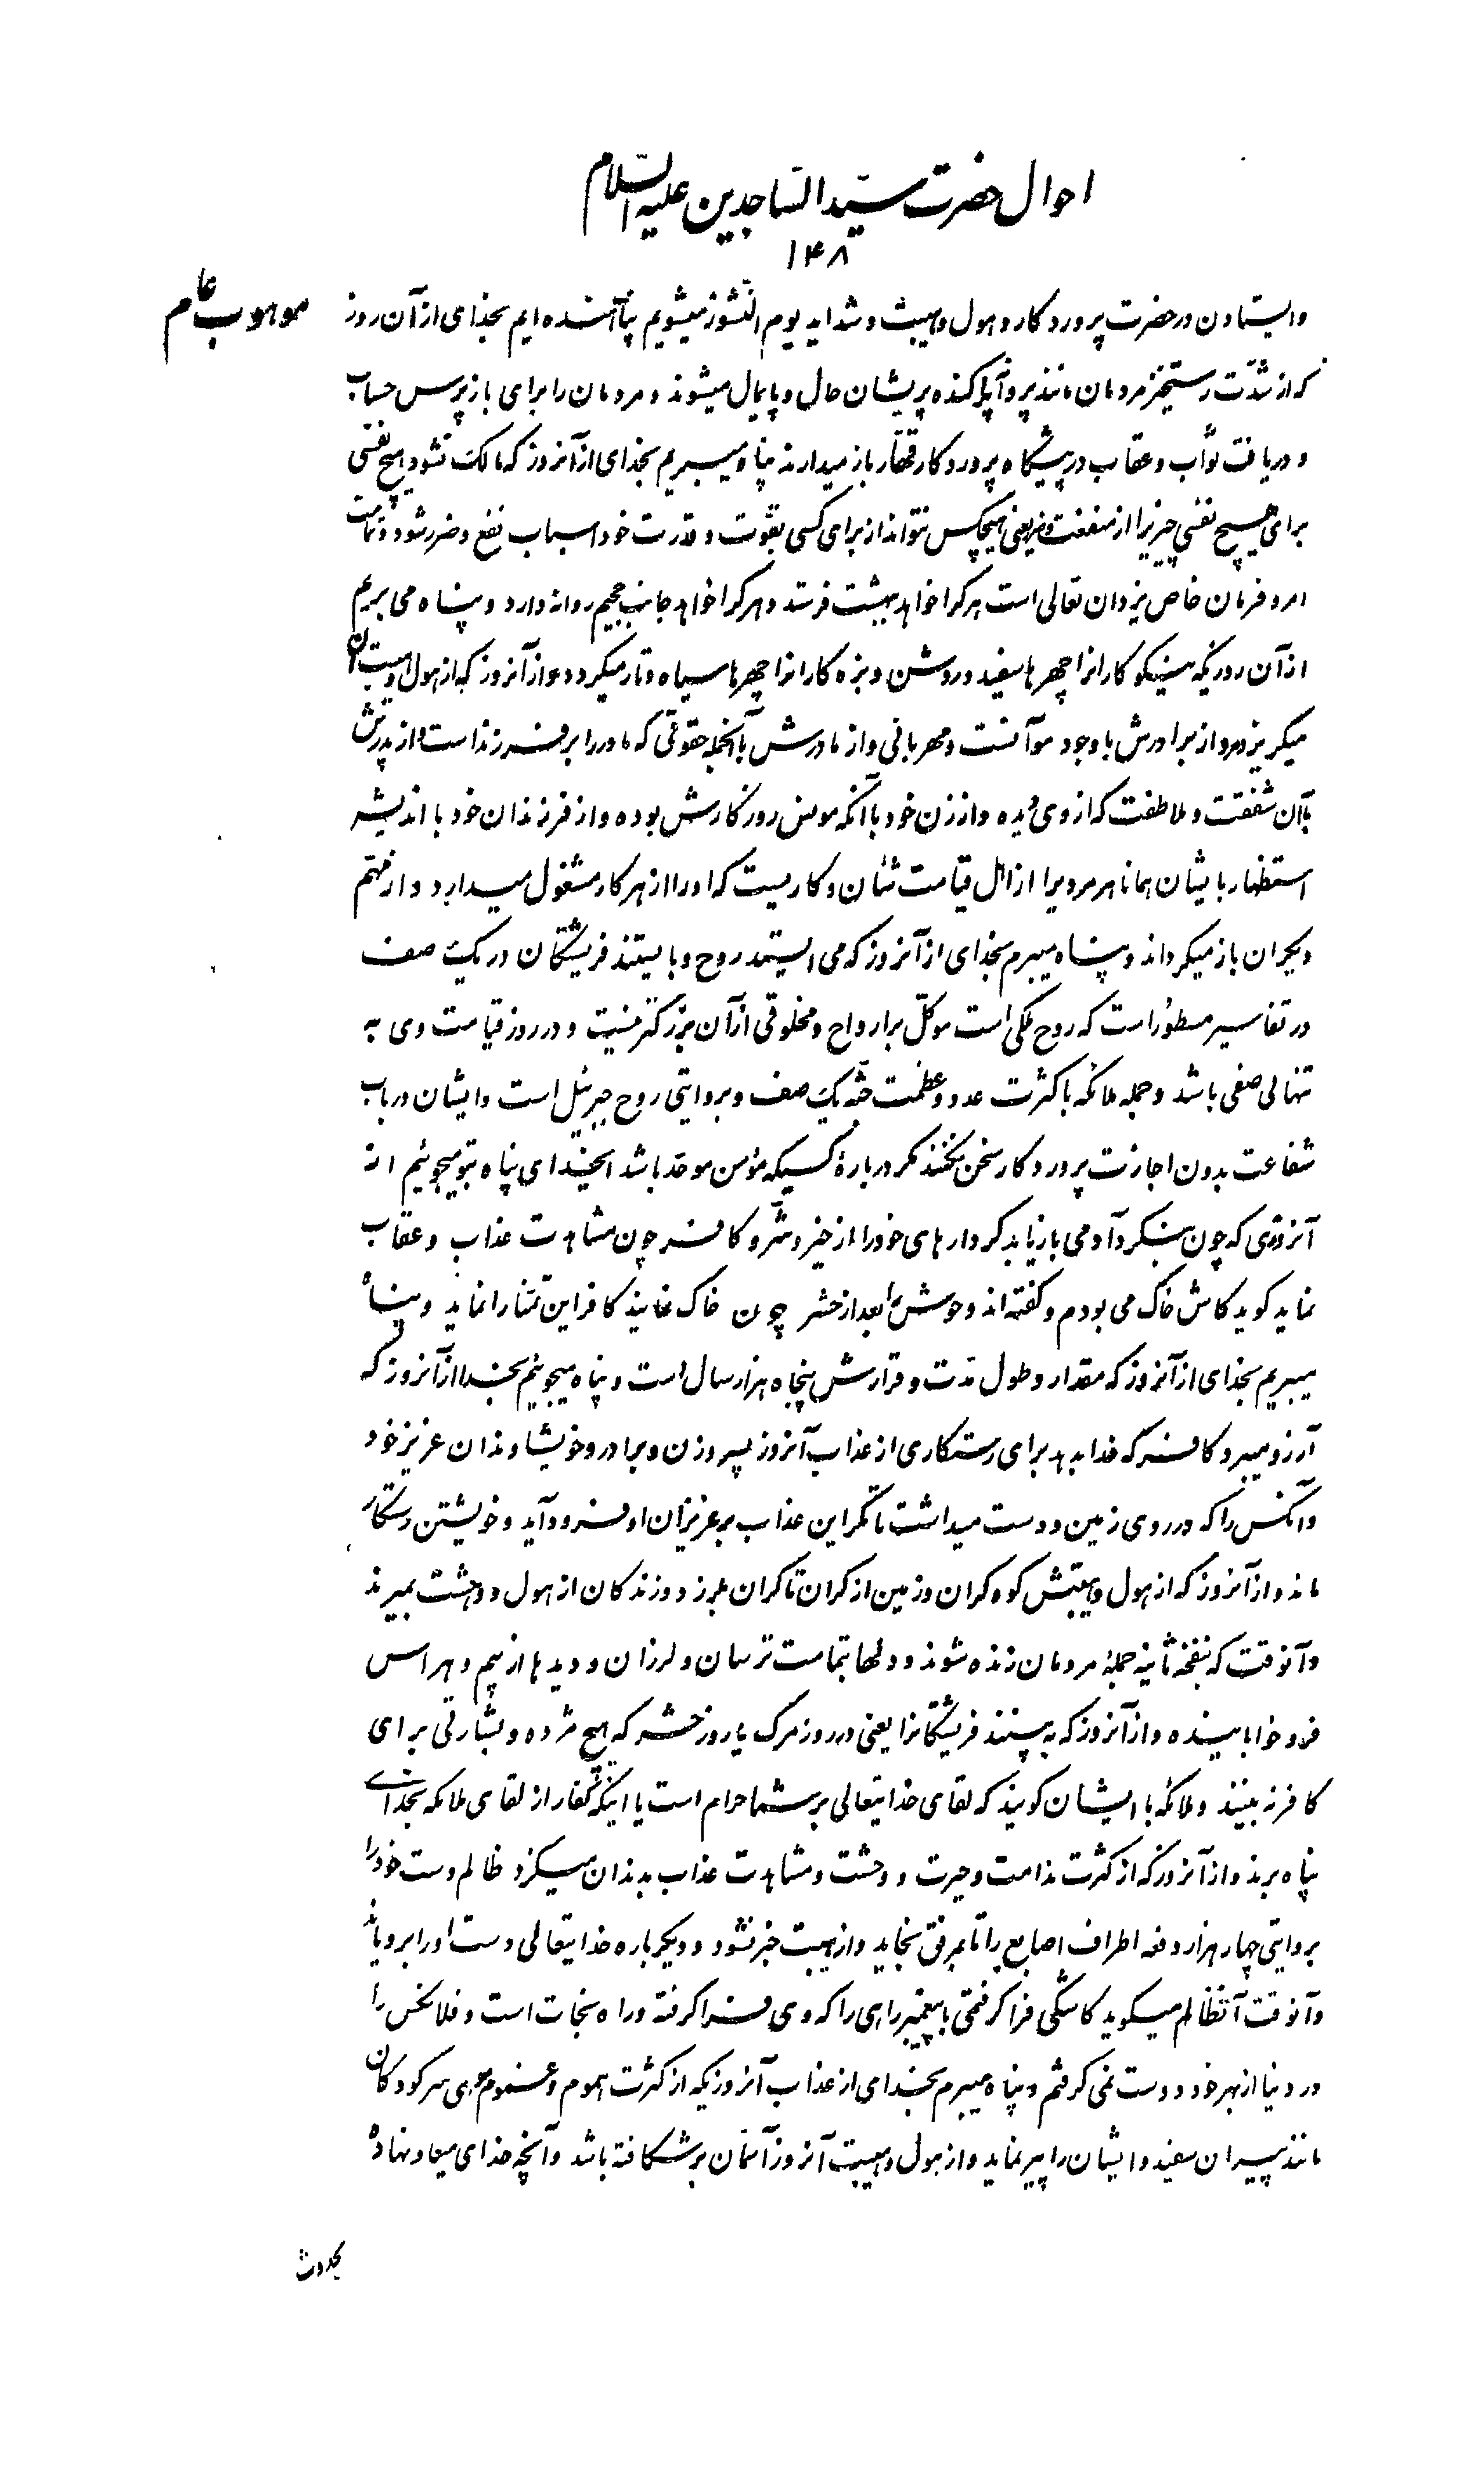 احوال حضرت سیّد السّاجدین علیه السّلام
۱۴۸
موهوب عام
وایستادن در حضرت پروردکار و هول و هیبت و شداید یوم النّشور میشویم پناهنده ایم بخدای از آن روز
که از شدّت رستیخز مردمان مانند پروانه پراکنده پریشان حال و پایمال میشوند و مردمان را برای بازپرس حساب
و دریافت ثواب و عقاب در پیشکاه پروردکار قهّار باز میدارند پناه میبریم بخدای از آنروز که مالک نشود هیچ نفسی
برای هیچ نفسی چیزیرا از منفعت و ضر یعنی هیچکس نتواند از برای کسی بقوّت و قدرت خود اسباب نفع و ضرر شود و تمامت
امر و فرمان خاص یزدان تعالی است هر کرا خواهد ببهشت فرستد و هر کرا خواهد جانب جحیم روانه دارد و پناه می بریم
از آن روزیکه نیکو کارانرا چهرها سفید و روشن و بزه کارانرا چهرها سیاه و تار میکردد و از آنروز که از هول و هیبت آن
میکریزد مرد از برادرش با وجود موآنست و مهربانی و از مادرش با آنجمله حقوقی که مادر را بر فرزند است و از پدرش
با آن شفقت و ملاطفت که از وی دیده و از زن خود با آنکه مونس روزکارش بوده و از فرزندان خود با اندیشه
استظهار بایشان همانا هر مردیرا از اهل قیامت شان و کاریست که او را از هر کار مشغول میدارد و از مهّم
دیکران باز میکرداند و پناه میبرم بخدای از آنروز که می ایستد روح و بایستند فریشتکان در یک صف
در تفاسیر مسطور است که روح ملکی است موکّل بر ارواح و مخلوقی از آن بزرکتر نیست و در روز قیامت وی به
تنهائی صفی باشد و جمله ملائکه با کثرت عدد و عظمت جثّه یک صف و بروایتی روح جبرئیل است و ایشان در باب
شفاعت بدون اجازت پروردکار سخن نکنند مکر در بارهٔ کسیکه مؤمن موحّد باشد ایخدای پناه بتو میجوئیم از
آنروزی که چون بنکرد آدمی بازیابد کردارهای خود را از خیر و شرّ و کافر چون مشاهدت عذاب و عقاب
نماید کوید کاش خاک می بودم و کفته اند وحوش را بعد از حشر چون خاک نمایند کافر این تمنّا را نماید و پناه
میبریم بخدای از آنروز که مقدار و طول مدّت و قرارش پنجاه هزار سال است و پناه میجوئیم بخدا از آنروز که
آرزو میبرد کافر که فدا بدهد برای رستکاری از عذاب آنروز پسر و زن و برادر و خویشاوندان عزیز خود
و آنکس را که در روی زمین دوست میداشت تا مکر این عذاب بر عزیزان او فرود آید و خویشتن رستکار
ماند و از آنروز که از هول و هیبتش کوه کران و زمین از کران تا کران بلرزد و زندکان از هول و دهشت بمیرند
و آنوقت که بنفخه ثانیه جملهٔ مردمان زنده شوند و دلها بتمامت ترسان و لرزان و دیدها از بیم و هراس
فرو خوابانیده و از آنروز که به بینند فریشتکانرا یعنی در روز مرک یا روز حشر که هیچ مژده و بشارتی برای
کافر نه بینند و ملائکه با ایشان کویند که لقای خدایتعالی بر شما حرام است یا اینکه کفار از لقای ملائکه بخدای
پناه برند و از آنروز که از کثرت ندامت و حیرت و وحشت و مشاهدت عذاب بدندان میکزد ظالم دست خود را
بروایتی چهار هزار دفعه اطراف اصابع را تا بمرفق بخاید و از هیبت خبر نشود و دیکر باره خدایتعالی دست او را برویاند
و آنوقت آنظالم میکوید کاشکی فرا کرفتمی با پیغمبر راهی را که وی فرا کرفته و راه نجات است و فلانکس را
در دنیا از بهر خود دوست نمی کرفتم و پناه میبرم بخدای از عذاب آنروزیکه از کثرت هموم و غموم موی سر کودکان
مانند پیران سفید و ایشان را پیر نماید و از هول و هیبت آنروز آسمان بر شکافته باشد و آنچه خدای میعاد نهاده